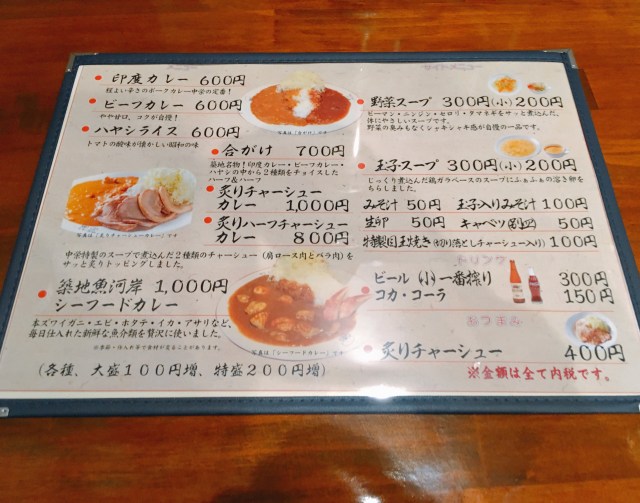 印度カレー 600円
程よい辛さのポークカレー中栄の定番!
ビーフカレー 600円
やや甘口、コクが自慢!
ハヤシライス 600円
トマトの酸味が懐かしい昭和の味
写真は「合がけ」デス
合がけ 700円
築地名物!印度カレー・ビーフカレー・
ハヤシの中から2種類をチョイスした
ハーフ&ハーフ
炙りチャーシュー
カレー 1,000円
炙りハーフチャーシュー
カレー 800円
写真は「炙りチャーシューカレー」デス
中栄特製のスープで煮込んだ2種類のチャーシュー(肩ロース肉とバラ肉)を
サッと炙りトッピングしました。
築地魚河岸 1,000円
シーフードカレー
本ズワイガニ・エビ・ホタテ・イカ・アサリなど、
毎日仕入れた新鮮な魚介類を贅沢に使いました。
※季節・仕入れ等で食材が異なることがあります。
写真は「シーフードカレー」デス
(各種、大盛100円増、特盛200円増)
野菜スープ 300円(小)200円
ピーマン・ニンジン・セロリ・タマネギをサッと煮込んだ、
体にやさしいスープです。
野菜の臭みもなくシャキシャキ感が自慢の一品です。
玉子スープ 300円(小)200円
じっくり煮込んだ鶏ガラベースのスープにふぁふぁの溶き卵を
ちらしました。
みそ汁 50円 玉子入りみそ汁 100円
生卵 50円 キャベツ(別皿) 50円
特製国玉焼き(切り落としチャーシュー入り) 100円
ビール(小)一番搾り 300円
コカ・コーラ 150円
炙りチャーシュー 400円
※金額は全て内税です。